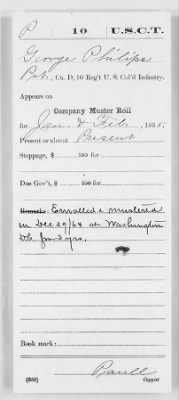 P 10 U.S.C.T.
George Philips
Pvt., Co. D, 10 Reg't U. S. Col'd Infantry.
Appears on
Company Muster Roll
for Jan. & Feb., 1865.
Present or absent Present
Stoppage, $ 100 for
Due Gov't, $ 100 for
Remarks: Enrolled & mustered
in Dec 29/64 at Washington
D.C. for 3 yrs.
Book mark:
(358)
Copyist.